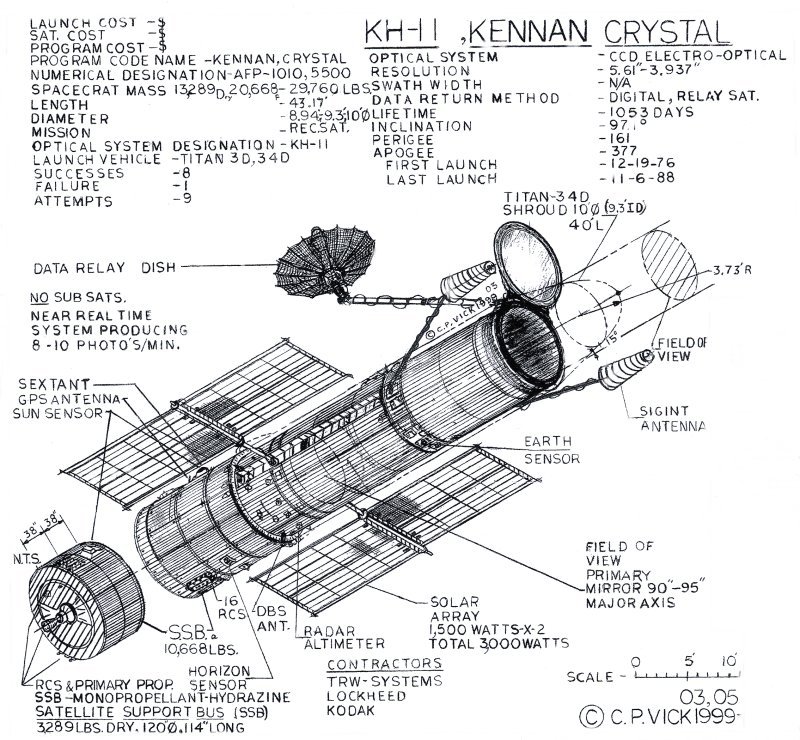 KH-11 , KENNAN CRYSTAL
LAUNCH COST -$
SAT. COST -$
PROGRAM COST -$
PROGRAM CODE NAME -KENNAN, CRYSTAL
NUMERICAL DESIGNATION-AFP-1010, 5500
SPACECRAT MASS 13,289 D, 20,668- 29,760 LBS
LENGTH - 43.17'
DIAMETER -8.94,-9.3,10'Ø
MISSION -REC. SAT.
OPTICAL SYSTEM DESIGNATION -KH-11
LAUNCH VEHICLE -TITAN 3D, 34D
SUCCESSES -8
FAILURE -1
ATTEMPTS -9
OPTICAL SYSTEM - CCD ELECTRO-OPTICAL
RESOLUTION - 5.61"-3.937"
SWATH WIDTH - N/A
DATA RETURN METHOD - DIGITAL, RELAY SAT.
LIFETIME - 1053 DAYS
INCLINATION - 97.1°
PERIGEE -161
APOGEE - 377
FIRST LAUNCH -12-19-76
LAST LAUNCH -11-6-88
TITAN-34D
SHROUD 10'Ø (9.3'ID)
40'L
DATA RELAY DISH
3.73'R
NO SUB SATS.
NEAR REAL TIME
SYSTEM PRODUCING
8-10 PHOTO'S/MIN.
03
© C.P. VICK 1999
15°
FIELD OF
VIEW
SEXTANT
GPS ANTENNA
SUN SENSOR
SIGINT
ANTENNA
EARTH
SENSOR
38" 38"
N.T.S.
FIELD OF
VIEW
PRIMARY
MIRROR 90"-95"
MAJOR AXIS
16
RCS
DBS
ANT.
SOLAR
ARRAY
1,500 WATTS-X-2
TOTAL 3,000WATTS
SSB-
10,668LBS.
RADAR
ALTIMETER
HORIZON
SENSOR
CONTRACTORS
TRW-SYSTEMS
LOCKHEED
KODAK
RCS & PRIMARY PROP.
SSB -MONOPROPELLANT-HYDRAZINE
SATELLITE SUPPORT BUS (SSB)
3,289 LBS. DRY. 120"Ø, 114" LONG
SCALE - 0 5' 10'
03,05
© C.P. VICK 1999-